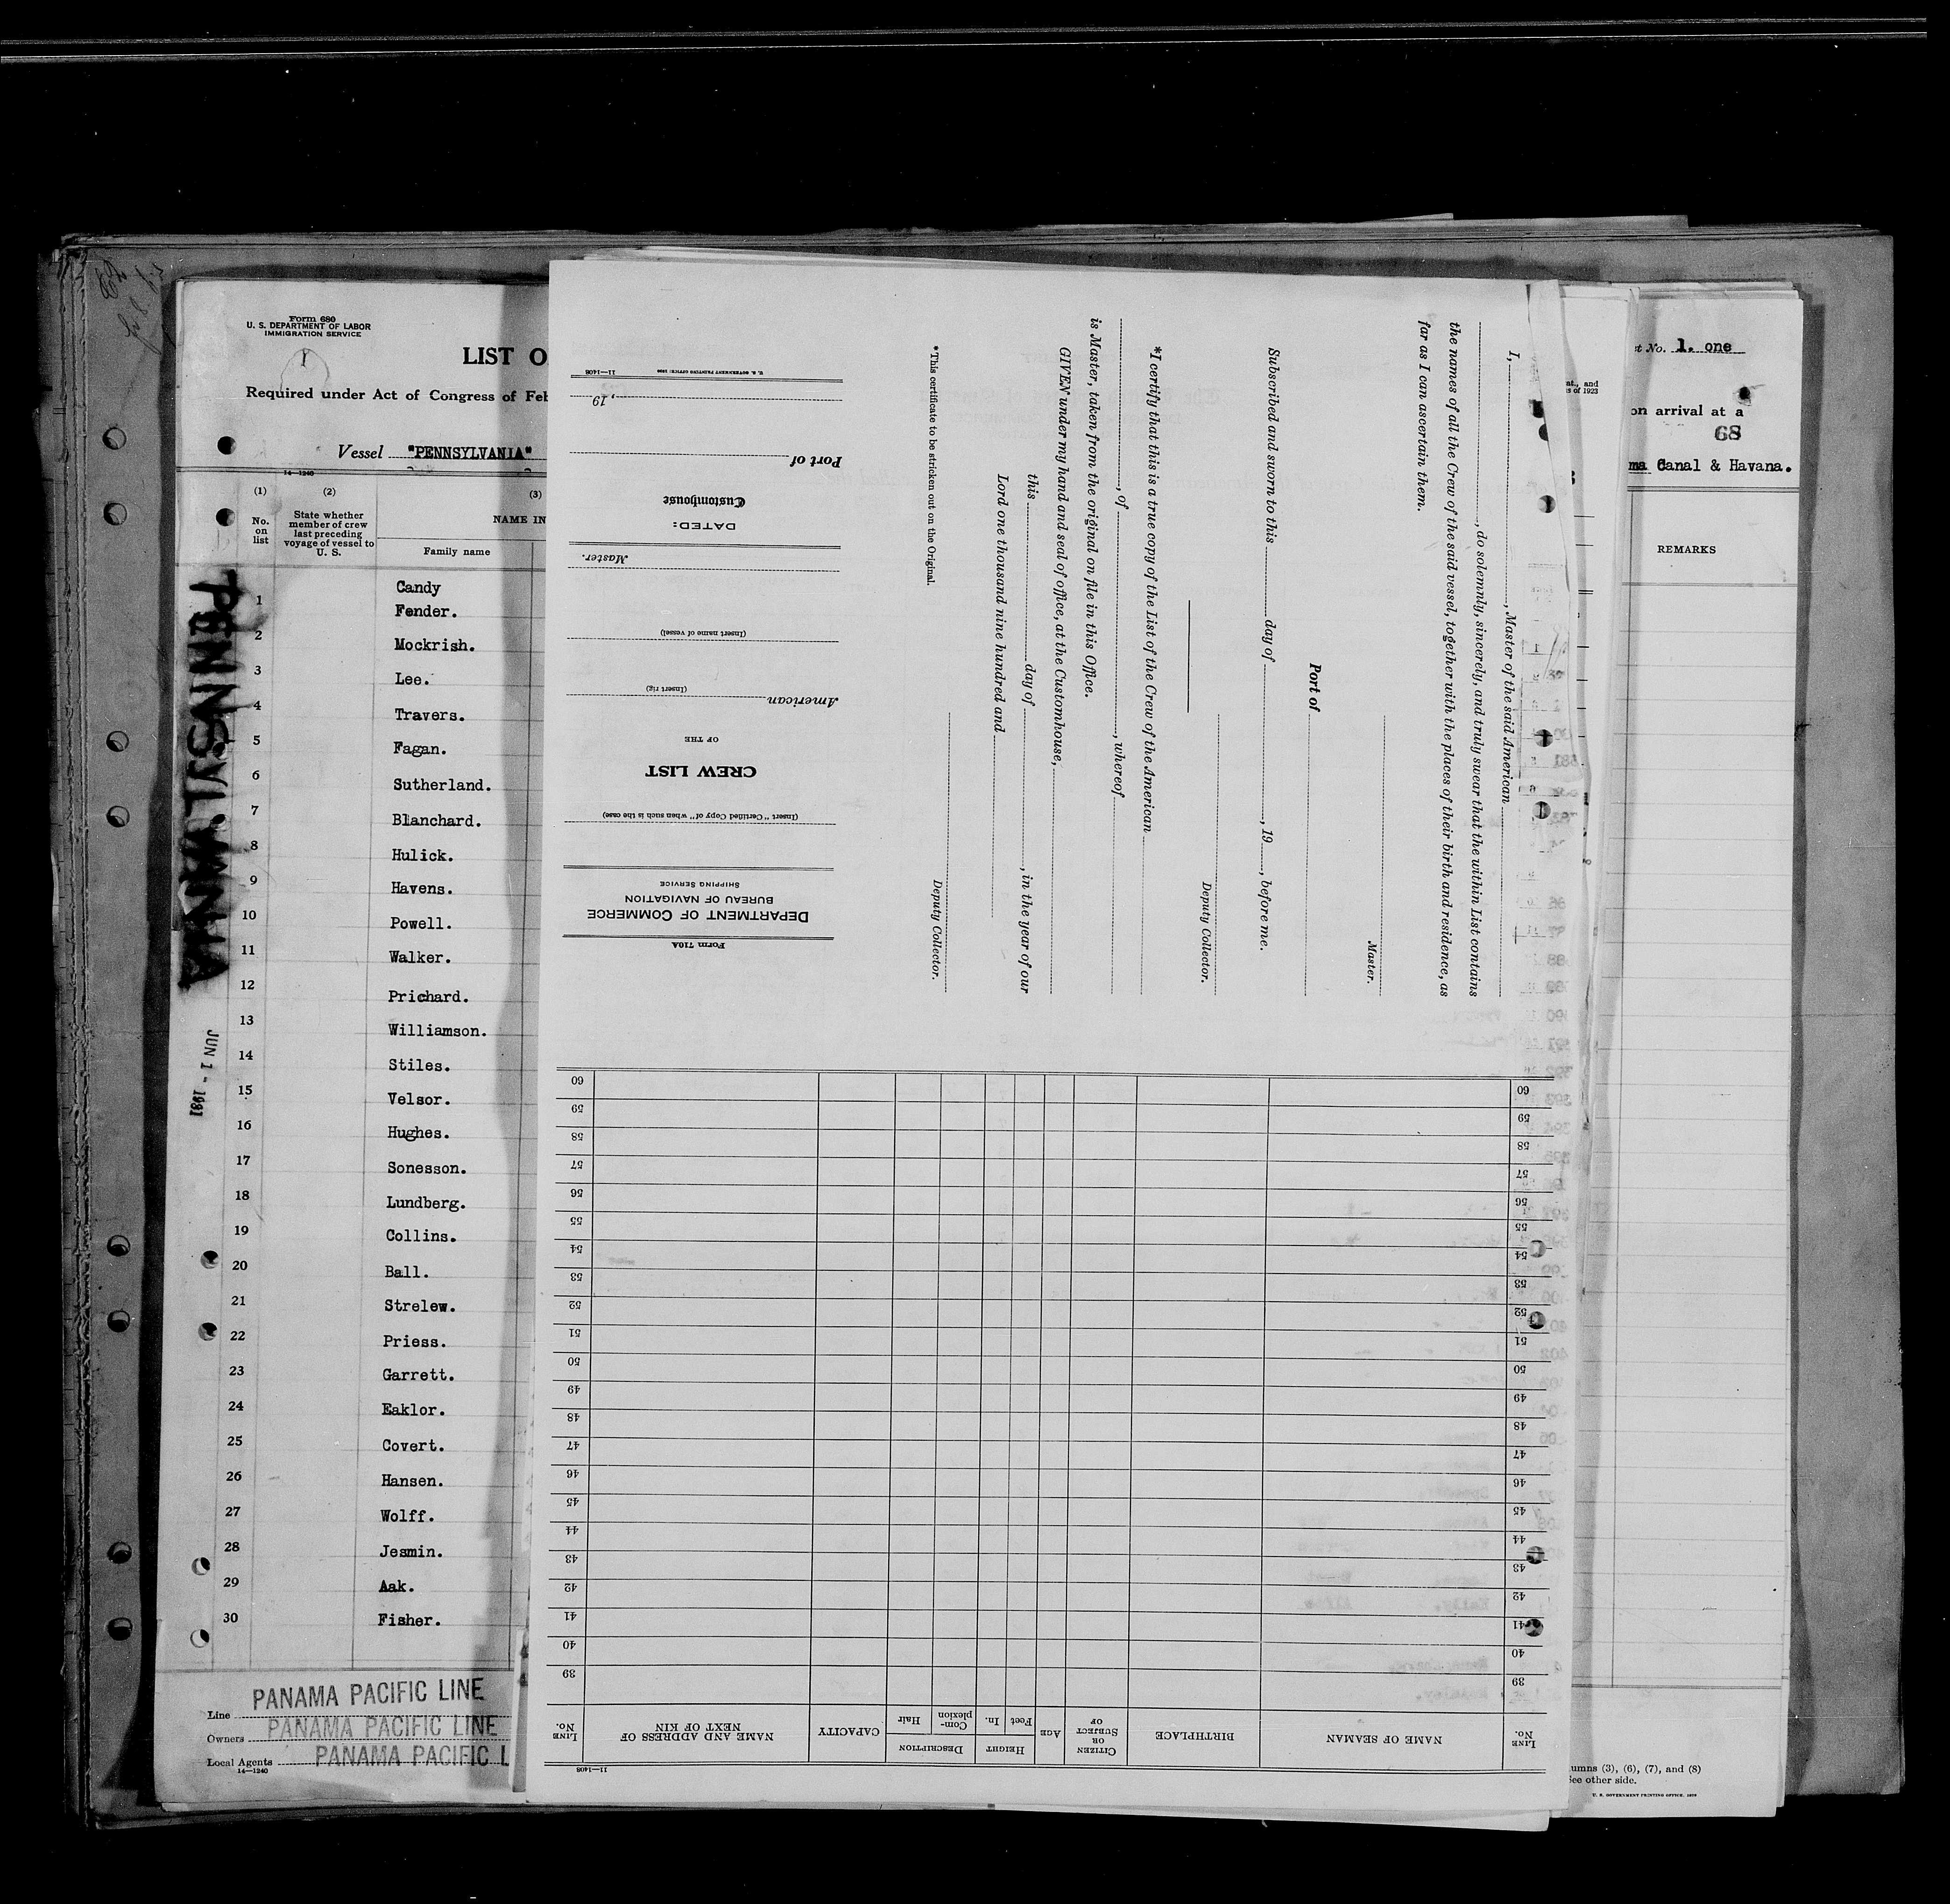 Form 680
U. S. DEPARTMENT OF LABOR
IMMIGRATION SERVICE
LIST O
Required under Act of Congress of Feb
Vessel "PENNSYLVANIA"
14—1240
(1)
(2)
(3)
No. on list
State whether member of crew last preceding voyage of vessel to U. S.
NAME IN
Family name
Candy
1 Fender.
2 Mockrish.
3 Lee.
4 Travers.
5 Fagan.
6 Sutherland.
7 Blanchard.
8 Hulick.
9 Havens.
10 Powell.
11 Walker.
12 Prichard.
13 Williamson.
14 Stiles.
15 Velsor.
16 Hughes.
17 Sonesson.
18 Lundberg.
19 Collins.
20 Ball.
21 Strelew.
22 Priess.
23 Garrett.
24 Eaklor.
25 Covert.
26 Hansen.
27 Wolff.
28 Jesmin.
29 Aak.
30 Fisher.
PENNSYLVANIA
JUN 1 - 1931
Line PANAMA PACIFIC LINE
Owners PANAMA PACIFIC LINE
Local Agents PANAMA PACIFIC L
14—1240
Form 710A
DEPARTMENT OF COMMERCE
BUREAU OF NAVIGATION
SHIPPING SERVICE
(Insert "Certified Copy of" when such is the case)
CREW LIST
OF THE
American
(Insert rig)
(Insert name of vessel)
Master.
DATED:
Customhouse
Port of
, 19
U. S. GOVERNMENT PRINTING OFFICE: 11—1408
I, , Master of the said American
, do solemnly, sincerely, and truly swear that the within List contains
the names of all the Crew of the said vessel, together with the places of their birth and residence, as
far as I can ascertain them.
Master.
Port of
Subscribed and sworn to this day of , 19 , before me.
Deputy Collector.
*I certify that this is a true copy of the List of the Crew of the American
, of , whereof
is Master, taken from the original on file in this Office.
GIVEN under my hand and seal of office, at the Customhouse,
this day of , in the year of our
Lord one thousand nine hundred and
Deputy Collector.
*This certificate to be stricken out on the Original.
11—1408
LINE No.
NAME OF SEAMAN
BIRTHPLACE
CITIZEN OR SUBJECT OF
AGE
HEIGHT
Feet
In.
DESCRIPTION
Complexion
Hair
CAPACITY
NAME AND ADDRESS OF NEXT OF KIN
LINE No.
39 39
40 40
41 41
42 42
43 43
44 44
45 45
46 46
47 47
48 48
49 49
50 50
51 51
52 52
53 53
54 54
55 55
56 56
57 57
58 58
59 59
60 60
t No. 1. one
at., and
s of 1923
on arrival at a
68
ma Canal & Havana.
REMARKS
umns (3), (6), (7), and (8)
See other side.
U. S. GOVERNMENT PRINTING OFFICE